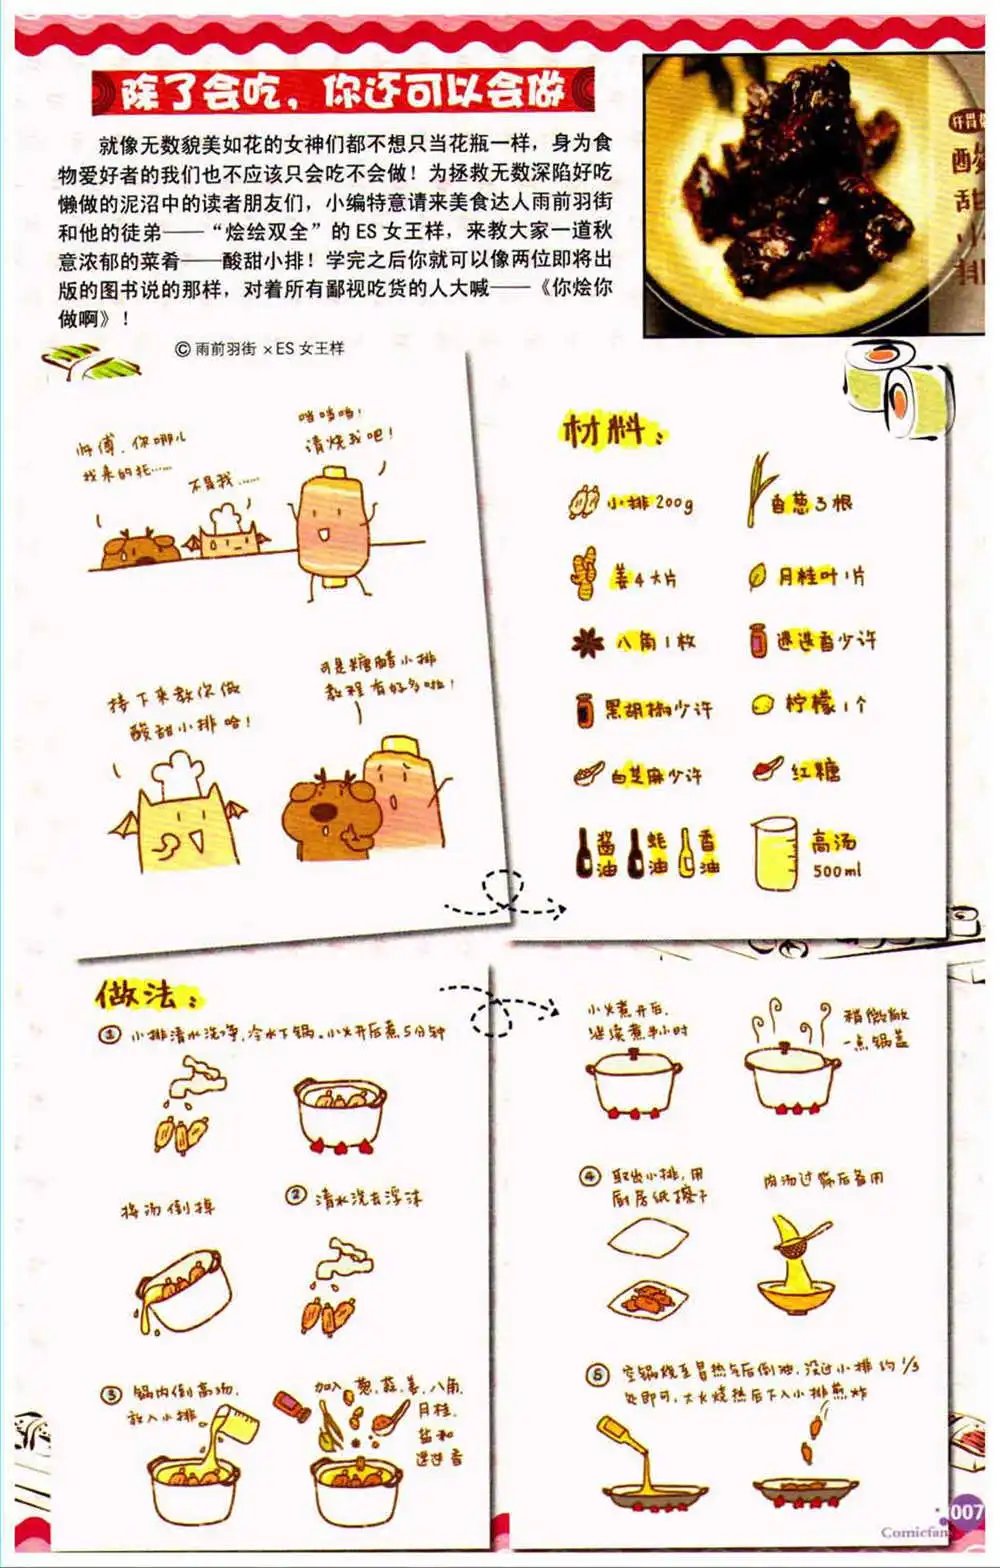 除了会吃，你还可以会做
就像无数貌美如花的女神们都不想只当花瓶一样，身为食
物爱好者的我们也不应该只会吃不会做！为拯救无数深陷好吃
懒做的泥沼中的读者朋友们，小编特意请来美食达人雨前羽街
和他的徒弟——“烩绘双全”的ES女王样，来教大家一道秋
意浓郁的菜肴——酸甜小排！学完之后你就可以像两位即将出
版的图书说的那样，对着所有鄙视吃货的人大喊——《你烩你
做啊》！
© 雨前羽街 ×ES 女王样
师傅，你哪儿
找来的托……
不是我……
当当当！
请烧我吧！
接下来教你做
酸甜小排哈！
可是糖醋小排
教程有好多啦！
材料：
小排200g
香葱3根
姜4大片
月桂叶1片
八角1枚
迷迭香少许
黑胡椒少许
柠檬1个
白芝麻少许
红糖
酱油
蚝油
香油
高汤
500ml
做法：
① 小排清水洗净，冷水下锅。小火开后煮5分钟
将汤倒掉
② 清水洗去浮沫
③ 锅内倒高汤，
放入小排
加入葱，蒜，姜，八角，
月桂，
盐和
迷迭香
小火煮开后，
继续煮半小时
稍微敞
一点锅盖
④ 取出小排，用
厨房纸擦干
肉汤过筛后备用
⑤ 空锅烧至冒热气后倒油，没过小排约1/3
处即可，大火烧热后下入小排煎炸
007
Comicfan